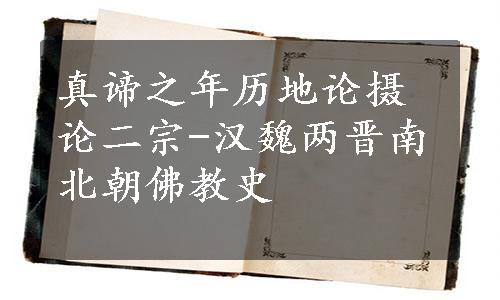 真谛之年历地论摄
论二宗-汉魏两晋南
北朝佛教史